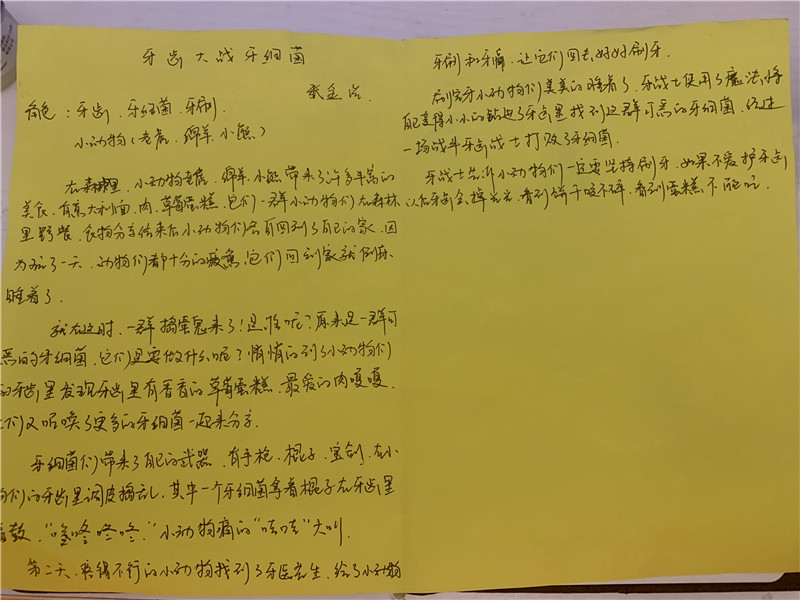 牙齿大战牙细菌
张孟
角色：牙齿、牙细菌、牙刷、
小动物（老虎、绵羊、小熊）
在森林里，小动物老虎、绵羊、小熊带来了许多丰富的
美食，有意大利面、肉、草莓蛋糕，它们一群小动物们在森林
里野餐，食物分享结束后小动物们各自回到了自己的家，因
为玩了一天，动物们都十分的疲惫，它们回到家就倒床
睡着了。
就在这时，一群捣蛋鬼来了！是谁呢？原来是一群可
恶的牙细菌，它们是要做什么呢？悄悄的到了小动物们
的牙齿里发现牙齿里有香香的草莓蛋糕、最爱的肉嘎嘎，
它们又呼唤了更多的牙细菌一起来分享。
牙细菌们带来了自己的武器，有手枪、棍子、宝剑，在小
物们的牙齿里调皮捣乱，其中一个牙细菌拿着棍子在牙齿里
敲，“咚咚咚，”小动物痛的“哇哇”大叫。
第二天，疼得不行的小动物找到了牙医先生，给了小动物
牙刷和牙膏，让它们回去好好刷牙。
刷完牙小动物们美美的睡着了，牙战士使用了魔法，将
自己变得小小的钻进了牙齿里找到这群可恶的牙细菌，经过
一场战斗牙齿战士打败了牙细菌。
牙战士告诉小动物们一定要坚持刷牙，如果不爱护牙齿
以后牙齿会掉光光，看到饼干咬不碎，看到蛋糕不能吃。